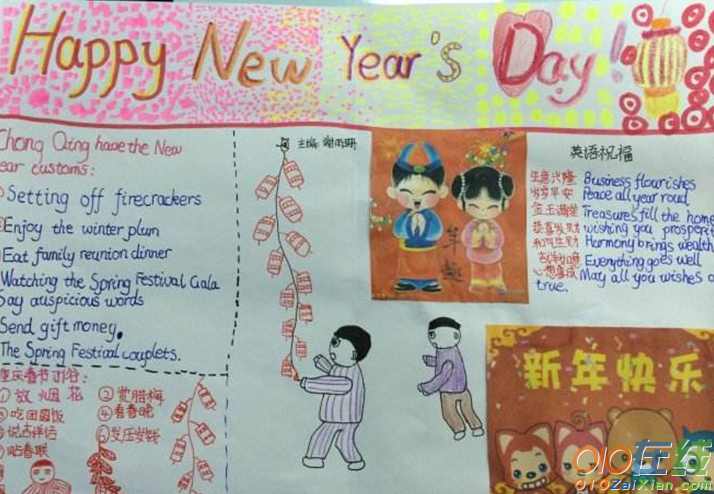 Happy New Year's Day!
Chong Qing have the New
ear customs:
Setting off firecrackers
Enjoy the winter plum
Eat family reunion dinner
Watching the Spring Festival Gala
Say auspicious words
Send gift money.
The Spring Festival couplets.
重庆春节习俗:
①放烟花
②赏腊梅
③吃团圆饭
④看春晚
说吉祥话
⑥发压岁钱
贴春联
主编:
英语祝福
生意兴隆 Business flourishes
岁岁平安 Peace all year roud
金玉满堂 Treasures fill the home
恭喜发财 wishing you prosperi
和气生财 Harmony brings wealth
吉祥如意 Everything goes well
心想事成 May all you wishes
true.
新年快乐
在线
OlOZaiXian.com